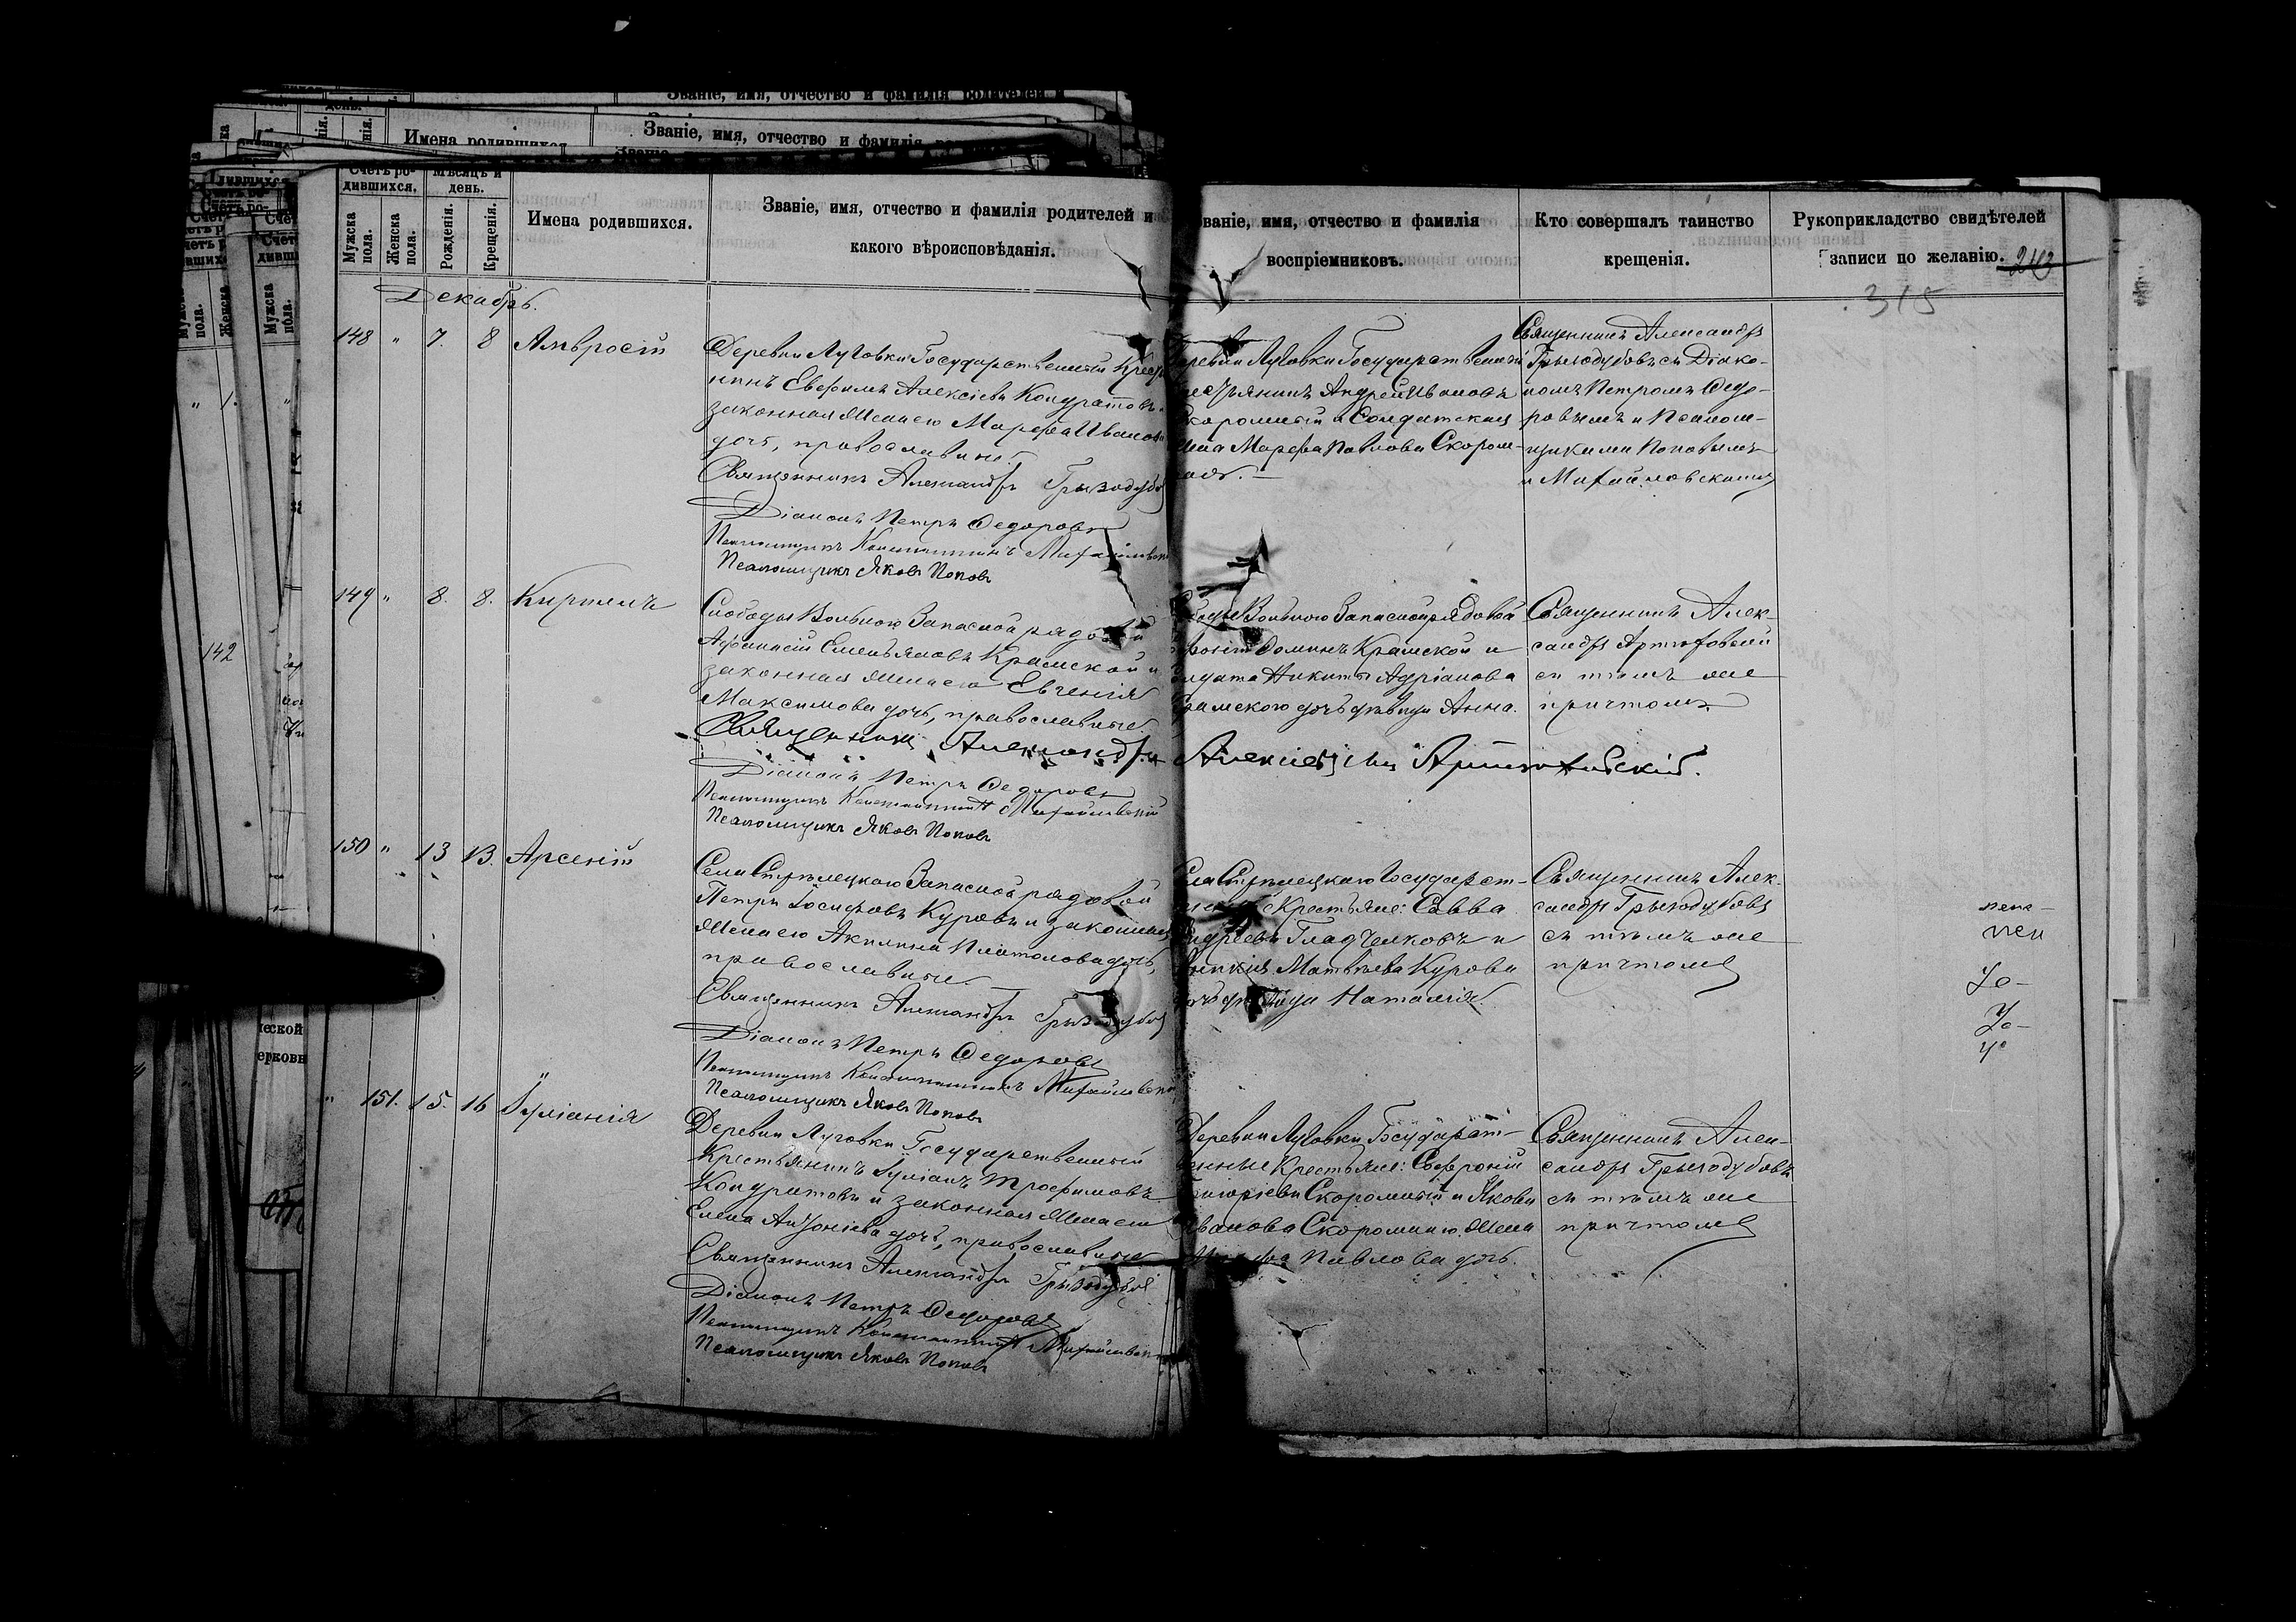 Счетъ ро-
дившихся.
Мѣсяцъ и
день.
Мужска
пола.
Женска
пола.
Рожденія.
Крещенія.
Имена родившихся.
Званіе, имя, отчество и фамилія родителей и
какого вѣроисповѣданія.
Званіе, имя, отчество и фамилія
воспріемниковъ.
Кто совершалъ таинство
крещенія.
Рукоприкладство свидѣтелей
записи по желанію.
243
315
Декабрь.
148 " 7. 8 Амвросій
Деревни Луговки Государственный Крестья
нинъ Евфимъ Алексіевъ Кондратовъ и
законная жена его Марфа Иванова
дочь, православные.
Священникъ Александръ Грызодубовъ
Діаконъ Петръ Федоровъ
Псаломщикъ Константинъ Михайловскій
Псаломщикъ Яковъ Поповъ
Деревни Луговки Государственный
крестьянинъ Андрей Ивановъ
Скоромный и Солдатская
жена Марфа Павлова Скором-
ная.
Священникъ Александръ
Грызодубовъ съ Діако-
номъ Петромъ Федо-
ровымъ и Псалом-
щиками Поповымъ
и Михайловскимъ
149 " 8. 8. Кириллъ
Слободы Вольного Запасной рядовой
Афанасій Емельяновъ Крамской и
законная жена его Евгенія
Максимова дочь, православные.
Священникъ Александръ Алексіевъ Артюховскій.
Діаконъ Петръ Федоровъ
Псаломщикъ Константинъ Михайловскій
Псаломщикъ Яковъ Поповъ
Слободы Вольного Запасной рядовой
Фоминъ Крамской и
солдата Никиты Адріанова
Крамского дочь дѣвица Анна.
Священникъ Алек-
сандръ Артюховскій
съ тѣмъ же
причтомъ
150 " 13 13. Арсеній
Села Стрѣлецкаго Запасной рядовой
Петръ Іосифовъ Куровъ и законная
жена его Акилина Платонова дочь,
православные.
Священникъ Александръ Грызодубовъ
Діаконъ Петръ Федоровъ
Псаломщикъ Константинъ Михайловскій
Псаломщикъ Яковъ Поповъ
Села Стрѣлецкаго Государст-
венные Крестьяне: Савва
Андреевъ Гладченковъ и
Матвѣева Курова
дочь дѣвица Наталія.
Священникъ Алек-
сандръ Грызодубовъ
съ тѣмъ же
причтомъ
" 151. 15. 16 Іуліанія
Деревни Луговки Государственный
Крестьянинъ Іуліанъ Трофимовъ
Кондратовъ и законная жена его
Елена Антоніева дочь, православные
Священникъ Александръ Грызодубовъ
Діаконъ Петръ Федоровъ
Псаломщикъ Константинъ Михайловскій
Псаломщикъ Яковъ Поповъ
Деревни Луговки Государст-
венные Крестьяне: Софроній
Григоріевъ Скоромный и Якова
Иванова Скоромнаго жена
Марфа Павлова дочь.
Священникъ Алек-
сандръ Грызодубовъ
съ тѣмъ же
причтомъ
142